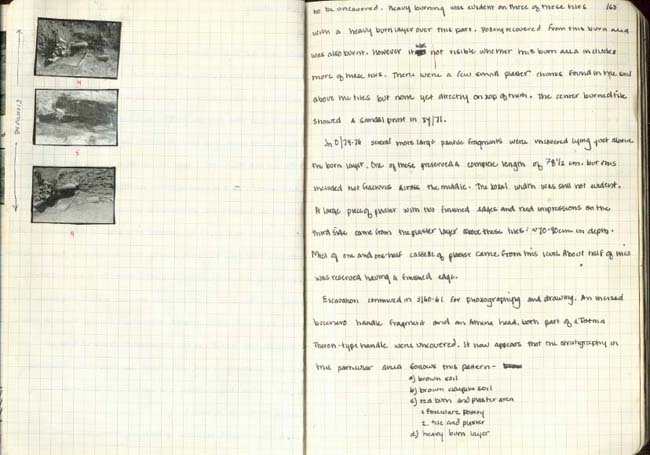 to be uncovered. Heavy burning was evident on three of these tiles
163
with a heavy burn layer over this part. Pottery recovered from this burn area
was also burnt. However it was not visible whether this burn area includes
more of these tiles. There were a few small plaster chunks found in the soil
above the tiles but none yet directly on top of them. The center burned tile
showed a sandal print in
In several more large pantile fragments were uncovered lying just above
the burn layer. One of these preserved a complete length of 78 1/2 cm. but this
included two fractures across the middle. The total width was still not evident.
A large piece of plaster with two finished edges and reed impressions on the
third side came from the plaster layer above these tiles: ~70-80cm in depth.
Most of one and one-half cassette of plaster came from this level. About half of this
was reserved having a finished edge.
Excavation continued in for photographing and drawing. An incised
bucchero handle fragment and an head, both part of a
Theron-type handle were uncovered. It now appears that the stratigraphy in
this particular area follows this pattern-
a) brown soil
b) brown claylike soil
c) red burn and plaster area
1. fineware pottery
2. tile and plaster
d) heavy burn layer
4
5
9